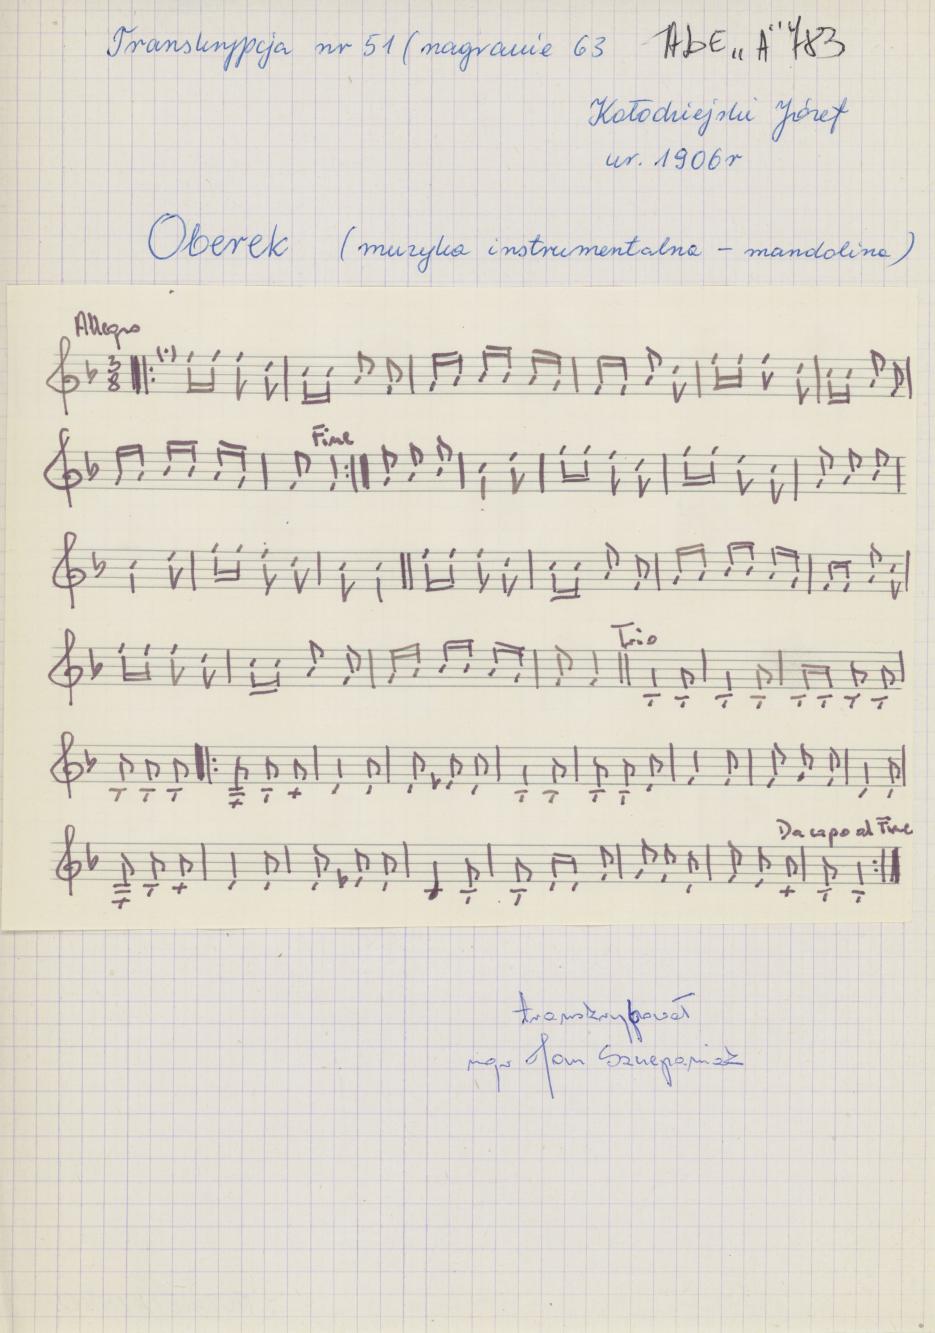 Transkrypcja nr 51 (nagranie 63 AbE „A" 783
Kołodziejski Józef
ur. 1906r
Oberek (muzyka instrumentalna – mandolina)
Allegro
3
8
(.)
Fine
Trio
Da capo al Fine
transkrybował
mgr Jan Szczepaniak